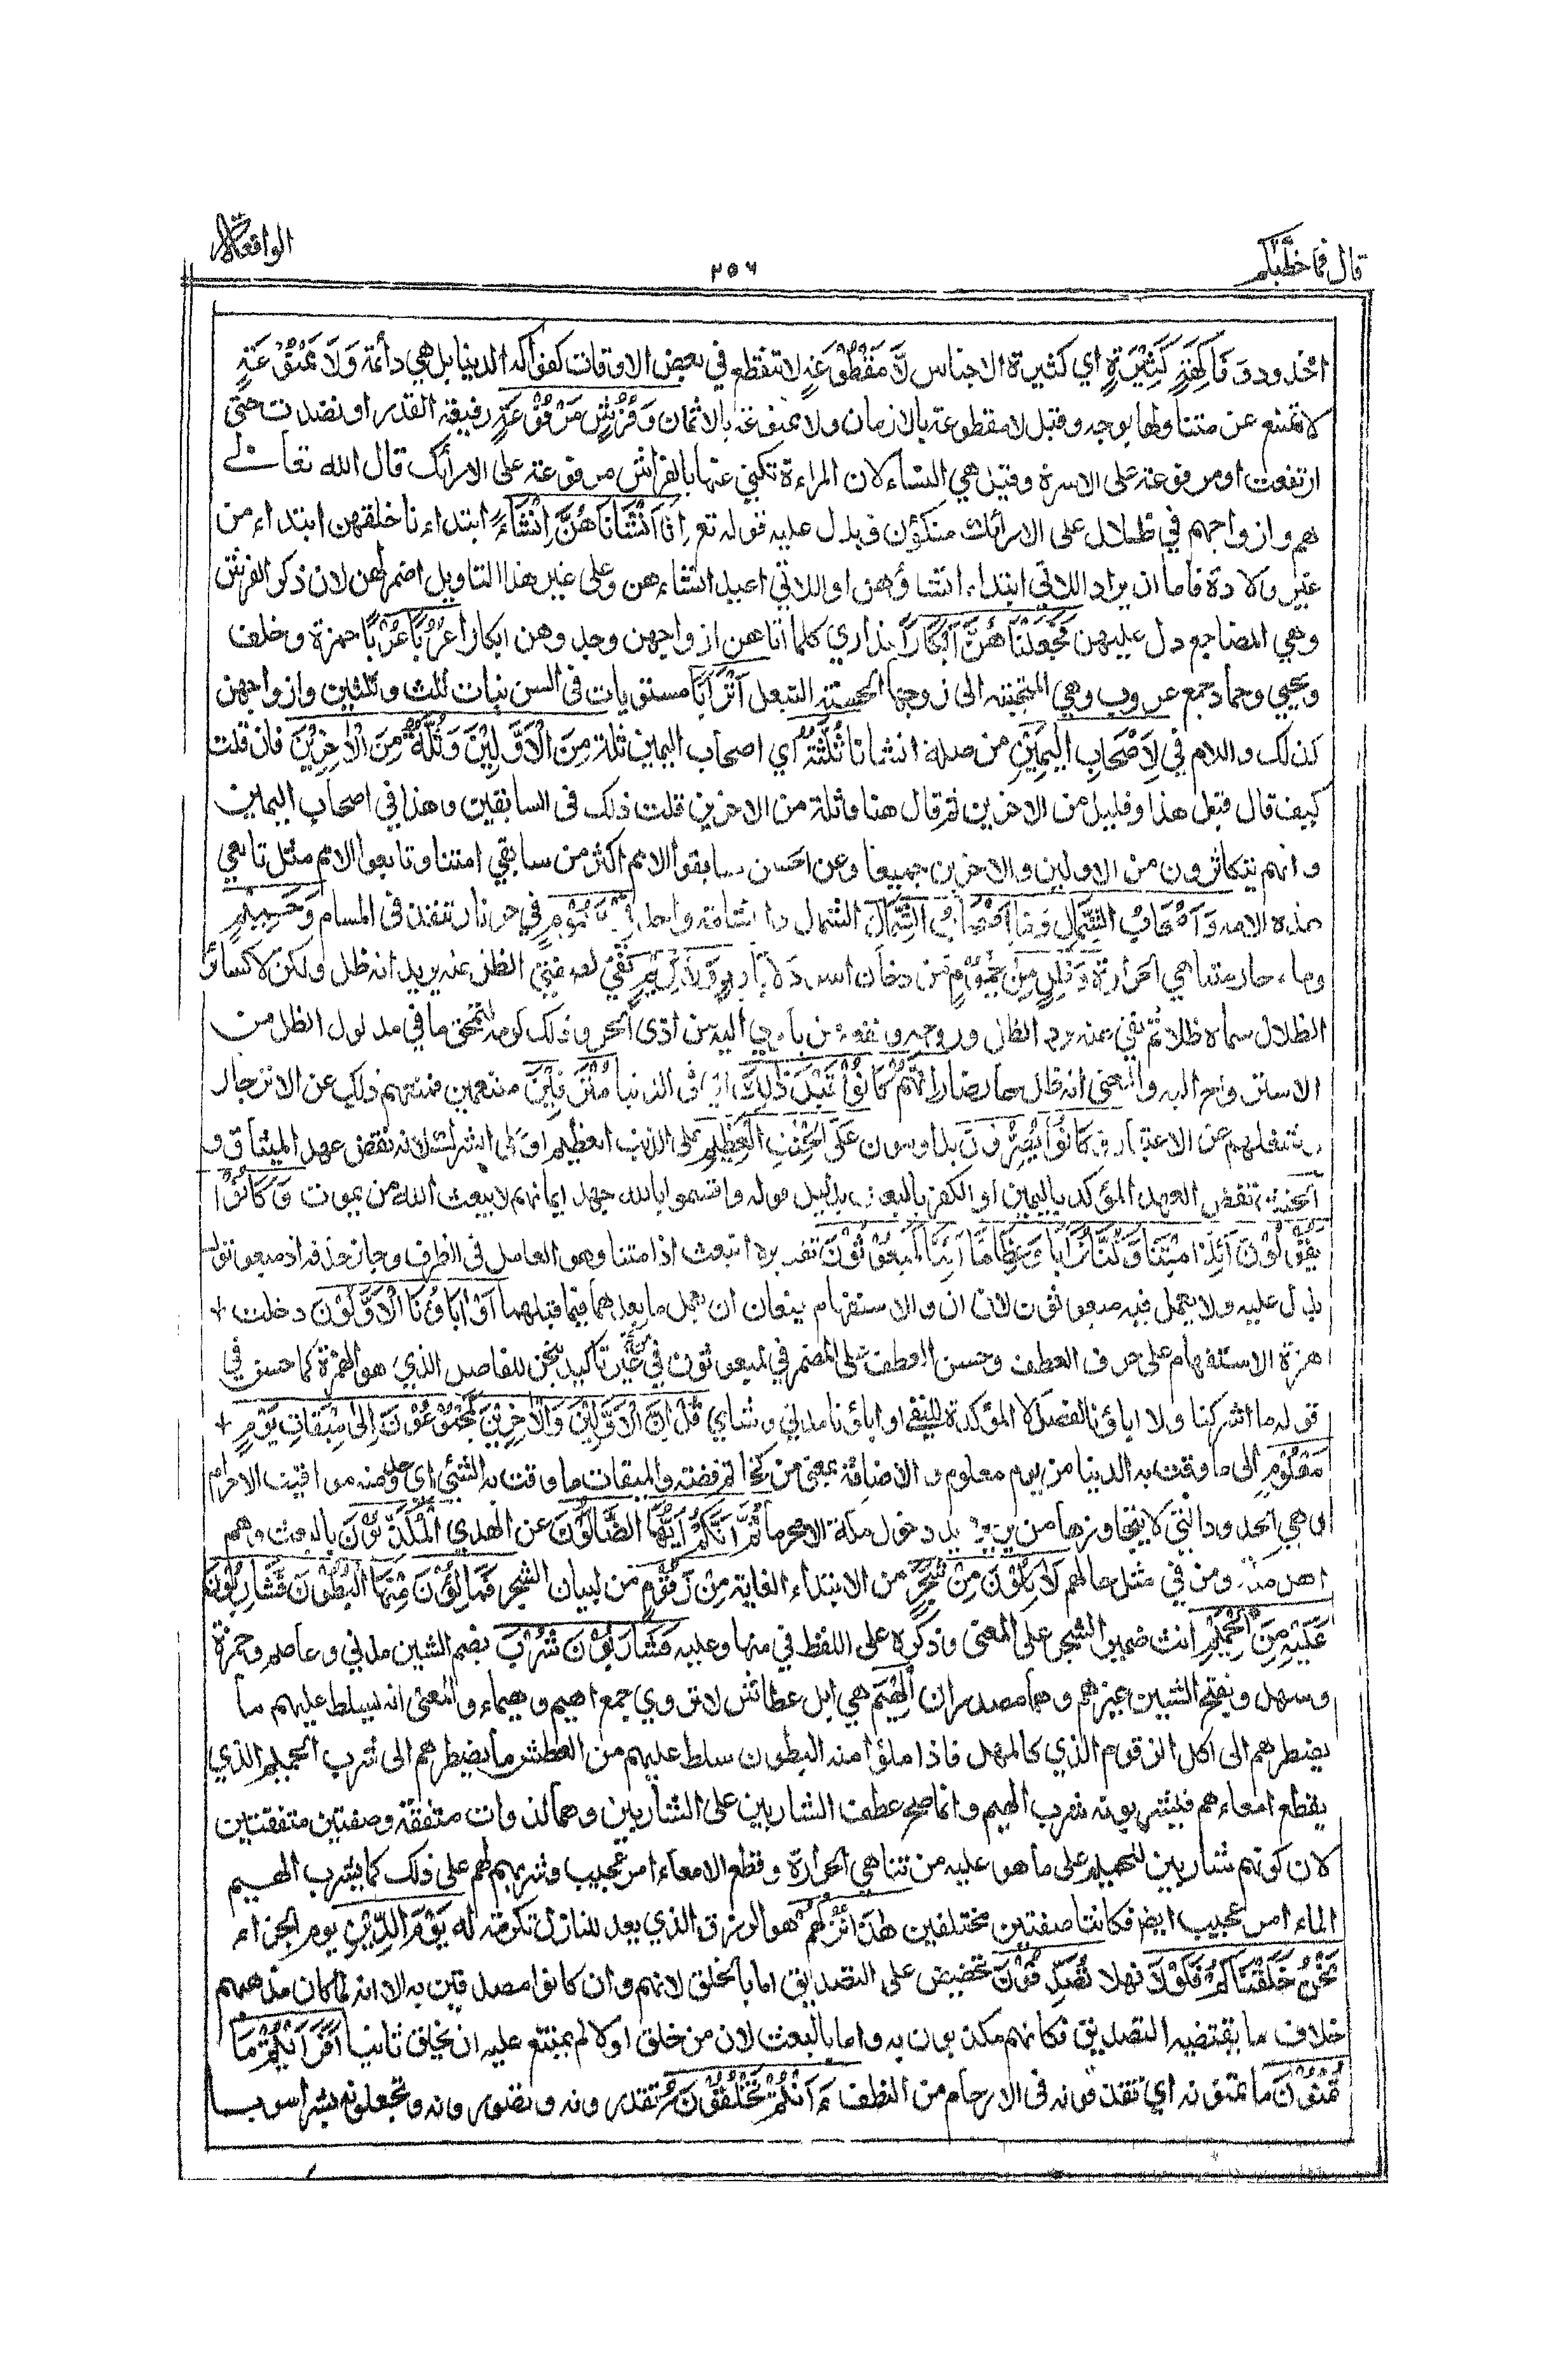 قال فما خطبكم
٢٥٦
الواقعة
اخدود وَفَاكِهَةٍ كَثِيْرَةٍ اي كثيرة الاجناس لَّا مَقْطُوْعَةٍ لا تنقطع في بعض الاوقات كفواكه الدنيا بل هي دائمة وَلَا مَمْنُوْعَةٍ
لا تمتنع عن متناولها بوجه وقيل لا مقطوعة بالازمان ولا ممنوعة بالاثمان وَفُرُشٍ مَرْفُوْعَةٍ رفيعة القدر او نضدت حتى
ارتفعت او مرفوعة على الاسرة وقيل هي النساء لان المراءة تكنى عنها بالفراش مرفوعة على الارائك قال الله تعالى
هم وازواجهم في ظلال على الارائك متكؤن ويدل عليه قوله تع اِنَّا اَنْشَاْنَاهُنَّ اِنْشَاءً ابتداءنا خلقهن ابتداء من
غير ولادة فاما ان يراد اللاتي ابتداء انشاؤهن او اللاتي اعيد انشاءهن وعلى غير هذا التاويل اضمر لهن لان ذكر الفرش
وهي المضاجع دل عليهن فَجَعَلْنَاهُنَّ اَبْكَارًا عذاري كلما اتاهن ازواجهن وجدوهن ابكارا عُرُبًا عُرْبًا حمزة وخلف
ويحيي وحماد جمع عروب وهي المتحببة الى زوجها الحسنة التبعل اَتْرَابًا مستويات في السن بنات ثلث وثلثين وازواجهن
كذلك واللام في لِاَصْحَابِ الْيَمِيْنِ من صلة انشانا ثُلَّةٌ اي اصحاب اليمين ثلة مِنَ الْاَوَّلِيْنَ وَثُلَّةٌ مِنَ الْاٰخِرِيْنَ فان قلت
كيف قال قبل هذا وقليل من الاخرين ثم قال هنا وثلة من الاخرين قلت ذلك في السابقين وهذا في اصحاب اليمين
وانهم يتكاثرون من الاولين والاخرين جميعا وعن الحسن سابقوا الامم اكثر من سابقي امتنا وتابعوا الامم مثل تابعي
هذه الامة وَاَصْحَابُ الشِّمَالِ مَا اَصْحَابُ الشِّمَالِ الشمال والشامة واحدة فِيْ سَمُوْمٍ في حر نار تنفذ في المسام وَحَمِيْمٍ
وماء حار متناهي الحرارة وَظِلٍّ مِنْ يَحْمُوْمٍ من دخان اسود لَا بَارِدٍ وَلَا كَرِيْمٍ نفي لصفتي الظل عنه يريد انه ظل ولكن لا كسائر
الظلال سماه ظلا ثم نفى عنه برد الظل وروحه ونفعه من ياوي اليه من اذى الحر وذلك كرمه ليمحق ما في مدلول الظل من
الاسترواح اليه والمعنى انه ظل حار ضار اِنَّهُمْ كَانُوْا قَبْلَ ذٰلِكَ اي في الدنيا مُتْرَفِيْنَ منعمين فمنعهم ذلك عن الانزجار
وشغلهم عن الاعتبار وَكَانُوْا يُصِرُّوْنَ يداومون عَلَى الْحِنْثِ الْعَظِيْمِ على الذنب العظيم او على الشرك لانه نقض عهد الميثاق و
الحنث نقض العهد المؤكد باليمين او الكفر بالبعث بدليل قوله واقسموا بالله جهد ايمانهم لا يبعث الله من يموت وَكَانُوْا
يَقُوْلُوْنَ اَئِذَا مِتْنَا وَكُنَّا تُرَابًا وَعِظَامًا اَئِنَّا لَمَبْعُوْثُوْنَ تقديره انبعث اذا متنا وهو العامل في الظرف وجاز حذفه اذ مبعوثون
يدل عليه ولا يعمل فيه مبعوثون لان ان والاستفهام يمنعان ان يعمل ما بعدهما فيما قبلهما اَوَاٰبَاؤُنَا الْاَوَّلُوْنَ دخلت
همزة الاستفهام على حرف العطف وحسن العطف على المضمر في لمبعوثون في غير تاكيد بنحن للفاصل الذي هو الهمزة كما حسن في
قوله ما اشركنا ولا اباؤنا لفصل لا المؤكدة للنفي او اباؤنا مدني وشامي قُلْ اِنَّ الْاَوَّلِيْنَ وَالْاٰخِرِيْنَ لَمَجْمُوْعُوْنَ اِلٰى مِيْقَاتِ يَوْمٍ
مَعْلُوْمٍ الى ما وقت به الدنيا من يوم معلوم والاضافة بمعنى من كخاتم فضة والميقات ما وقت به الشيئ اي حد ومنه مواقيت الاحرام
اي هي الحدود التي لا يتجاوزها من يريد دخول مكة الا محرما ثُمَّ اِنَّكُمْ اَيُّهَا الضَّالُّوْنَ عن الهدي الْمُكَذِّبُوْنَ بالبعث وهم
اهل مكة ومن في مثل حالهم لَاٰكِلُوْنَ مِنْ شَجَرٍ من الابتداء الغاية مِنْ زَقُّوْمٍ من لبيان الشجر فَمَالِؤُنَ مِنْهَا الْبُطُوْنَ فَشَارِبُوْنَ
عَلَيْهِ مِنَ الْحَمِيْمِ انث ضمير الشجر على المعنى وذكره على اللفظ في منها وعليه فَشَارِبُوْنَ شُرْبَ بضم الشين مدني وعاصم وحمزة
وسهل وبفتح الشين غيرهم وهما مصدران الْهِيْمِ هي ابل عطاش لا تروي جمع اهيم وهيماء والمعنى انه يسلط عليهم ما
يضطرهم الى اكل الزقوم الذي كالمهل فاذا ملؤا منه البطون سلط عليهم من العطش ما يضطرهم الى شرب الحميم الذي
يقطع امعاءهم فيشربونه شرب الهيم وانما صح عطف الشاربين على الشاربين وهما لذوات متفقة وصفتين متفقتين
لان كونهم شاربين للحميم على ما هو عليه من تناهي الحرارة وقطع الامعاء امر عجيب وشربهم لهم على ذلك كما يشرب الهيم
الماء امر عجيب ايضم فكانتا صفتين مختلفين هٰذَا نُزُلُهُمْ هو الرزق الذي يعد للنازل تكرمة له يَوْمَ الدِّيْنِ يوم الجزاء
نَحْنُ خَلَقْنَاكُمْ فَلَوْلَا فهلا تُصَدِّقُوْنَ تحضيض على التصديق اما بالخلق لانهم وان كانوا مصدقين به الا انه لما كان مذهبهم
خلاف ما يقتضيه التصديق فكانهم مكذبون به واما بالبعث لان من خلق اولا لم يمتنع عليه ان يخلق ثانيا اَفَرَاَيْتُمْ مَا
تُمْنُوْنَ ما تمنونه اي تقذفونه في الارحام من النطف ءَاَنْتُمْ تَخْلُقُوْنَهُ تقدرونه وتصورونه وتجعلونه بشرا سويا